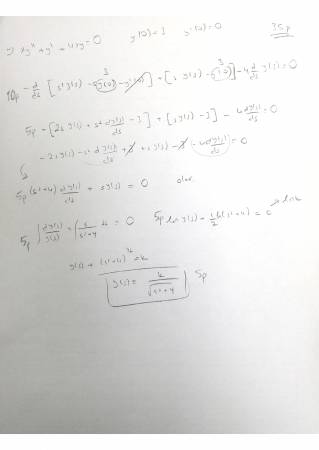 ⇒ xy'' + y' + 4xy = 0 y(0) = 3 y'(0) = 0 35p
10p - d/ds [s²y(s) - s y(0) - y'(0)] + [s y(s) - y(0)] - 4 d/ds y(s) = 0
3 3
5p - [2s y(s) + s² dy(s)/ds - 3] + [s y(s) - 3] - 4 dy(s)/ds = 0
- 2s y(s) - s² dy(s)/ds + 3 + s y(s) - 3 - 4 dy(s)/ds = 0
5p (s²+4) dy(s)/ds + s y(s) = 0 olur.
5p ∫ dy(s)/y(s) + ∫ s/s²+4 ds = 0 5p ln y(s) + 1/2 ln(s²+4) = 0 → ln k
y(s) + (s²+4)^1/2 = k
y(s) = k/√s²+4 5p